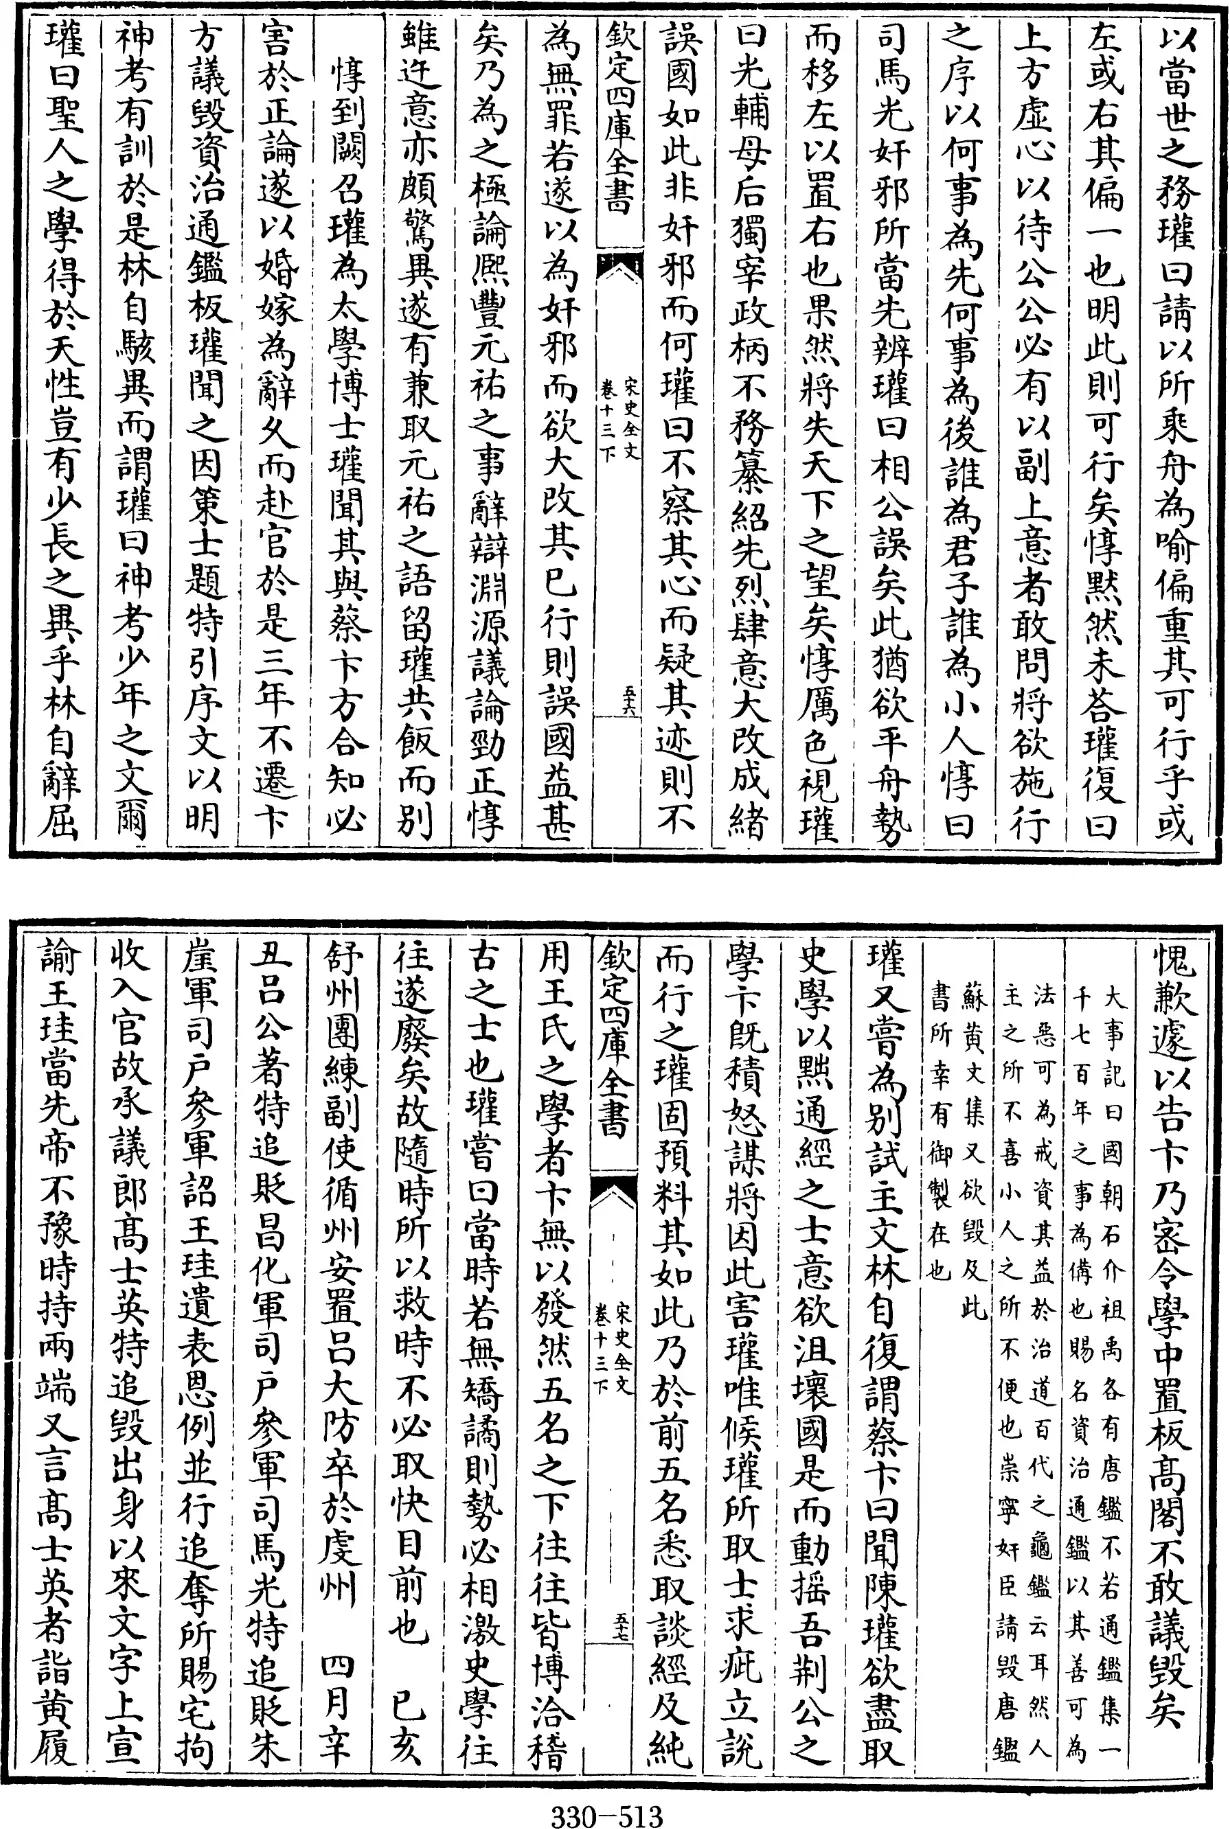 以當世之務瓘曰請以所乘舟為喻偏重其可行乎或
左或右其偏一也明此則可行矣惇默然未荅瓘復曰
上方虛心以待公公必有以副上意者敢問將欲施行
之序以何事為先何事為後誰為君子誰為小人惇曰
司馬光奸邪所當先辨瓘曰相公誤矣此猶欲平舟勢
而移左以置右也果然將失天下之望矣惇厲色視瓘
曰光輔母后獨宰政柄不務纂紹先烈肆意大改成緒
誤國如此非奸邪而何瓘曰不察其心而疑其迹則不
欽定四庫全書
宋史全文
卷十三下
五十六
為無罪若遂以為奸邪而欲大改其已行則誤國益甚
矣乃為之極論熈豐元祐之事辭辯淵源議論勁正惇
雖迕意亦頗驚異遂有兼取元祐之語留瓘共飯而别
惇到闕召瓘為太學博士瓘聞其與蔡卞方合知必
害於正論遂以婚嫁為辭久而赴官於是三年不遷卞
方議毀資治通鑑板瓘聞之因策士題特引序文以明
神考有訓於是林自駭異而謂瓘曰神考少年之文爾
瓘曰聖人之學得於天性豈有少長之異乎林自辭屈
愧歉遽以告卞乃密令學中置板高閣不敢議毀矣
大事記曰國朝石介祖禹各有唐鑑不若通鑑集一
千七百年之事為備也賜名資治通鑑以其善可為
法惡可為戒資其益於治道百代之龜鑑云耳然人
主之所不喜小人之所不便也崇寧奸臣請毀唐鑑
蘇黄文集又欲毀及此
書所幸有御製在也
瓘又嘗為别試主文林自復謂蔡卞曰聞陳瓘欲盡取
史學以黜通經之士意欲沮壞國是而動揺吾荆公之
學卞旣積怒謀將因此害瓘唯候瓘所取士求疵立說
而行之瓘固預料其如此乃於前五名悉取談經及純
欽定四庫全書
宋史全文
卷十三下
五十七
用王氏之學者卞無以發然五名之下往往皆博洽稽
古之士也瓘嘗曰當時若無矯譎則勢必相激史學往
往遂廢矣故隨時所以救時不必取快目前也　已亥
舒州團練副使循州安置吕大防卒於虔州　四月辛
丑吕公著特追貶昌化軍司戶參軍司馬光特追貶朱
崖軍司戶參軍詔王珪遺表恩例並行追奪所賜宅拘
收入官故承議郎高士英特追毀出身以來文字上宣
諭王珪當先帝不豫時持兩端又言高士英者詣黄履
330-513